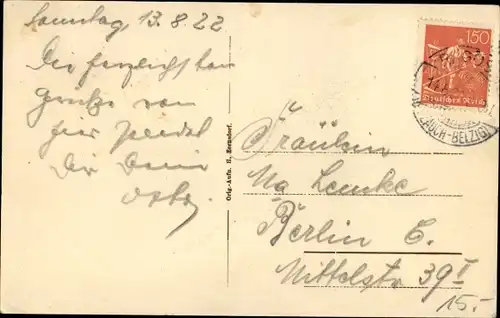 Sonntag 13.8.22
Die herzlichsten
Grüße von
hier sendet
Dir Deine
Orig.-Aufn. H. Bernsdorf.
150
Deutsches Reich
(ZAUCH-BELZIG)
Fräulein
Lemke
Berlin C.
Mittelstr 39 I
15.-